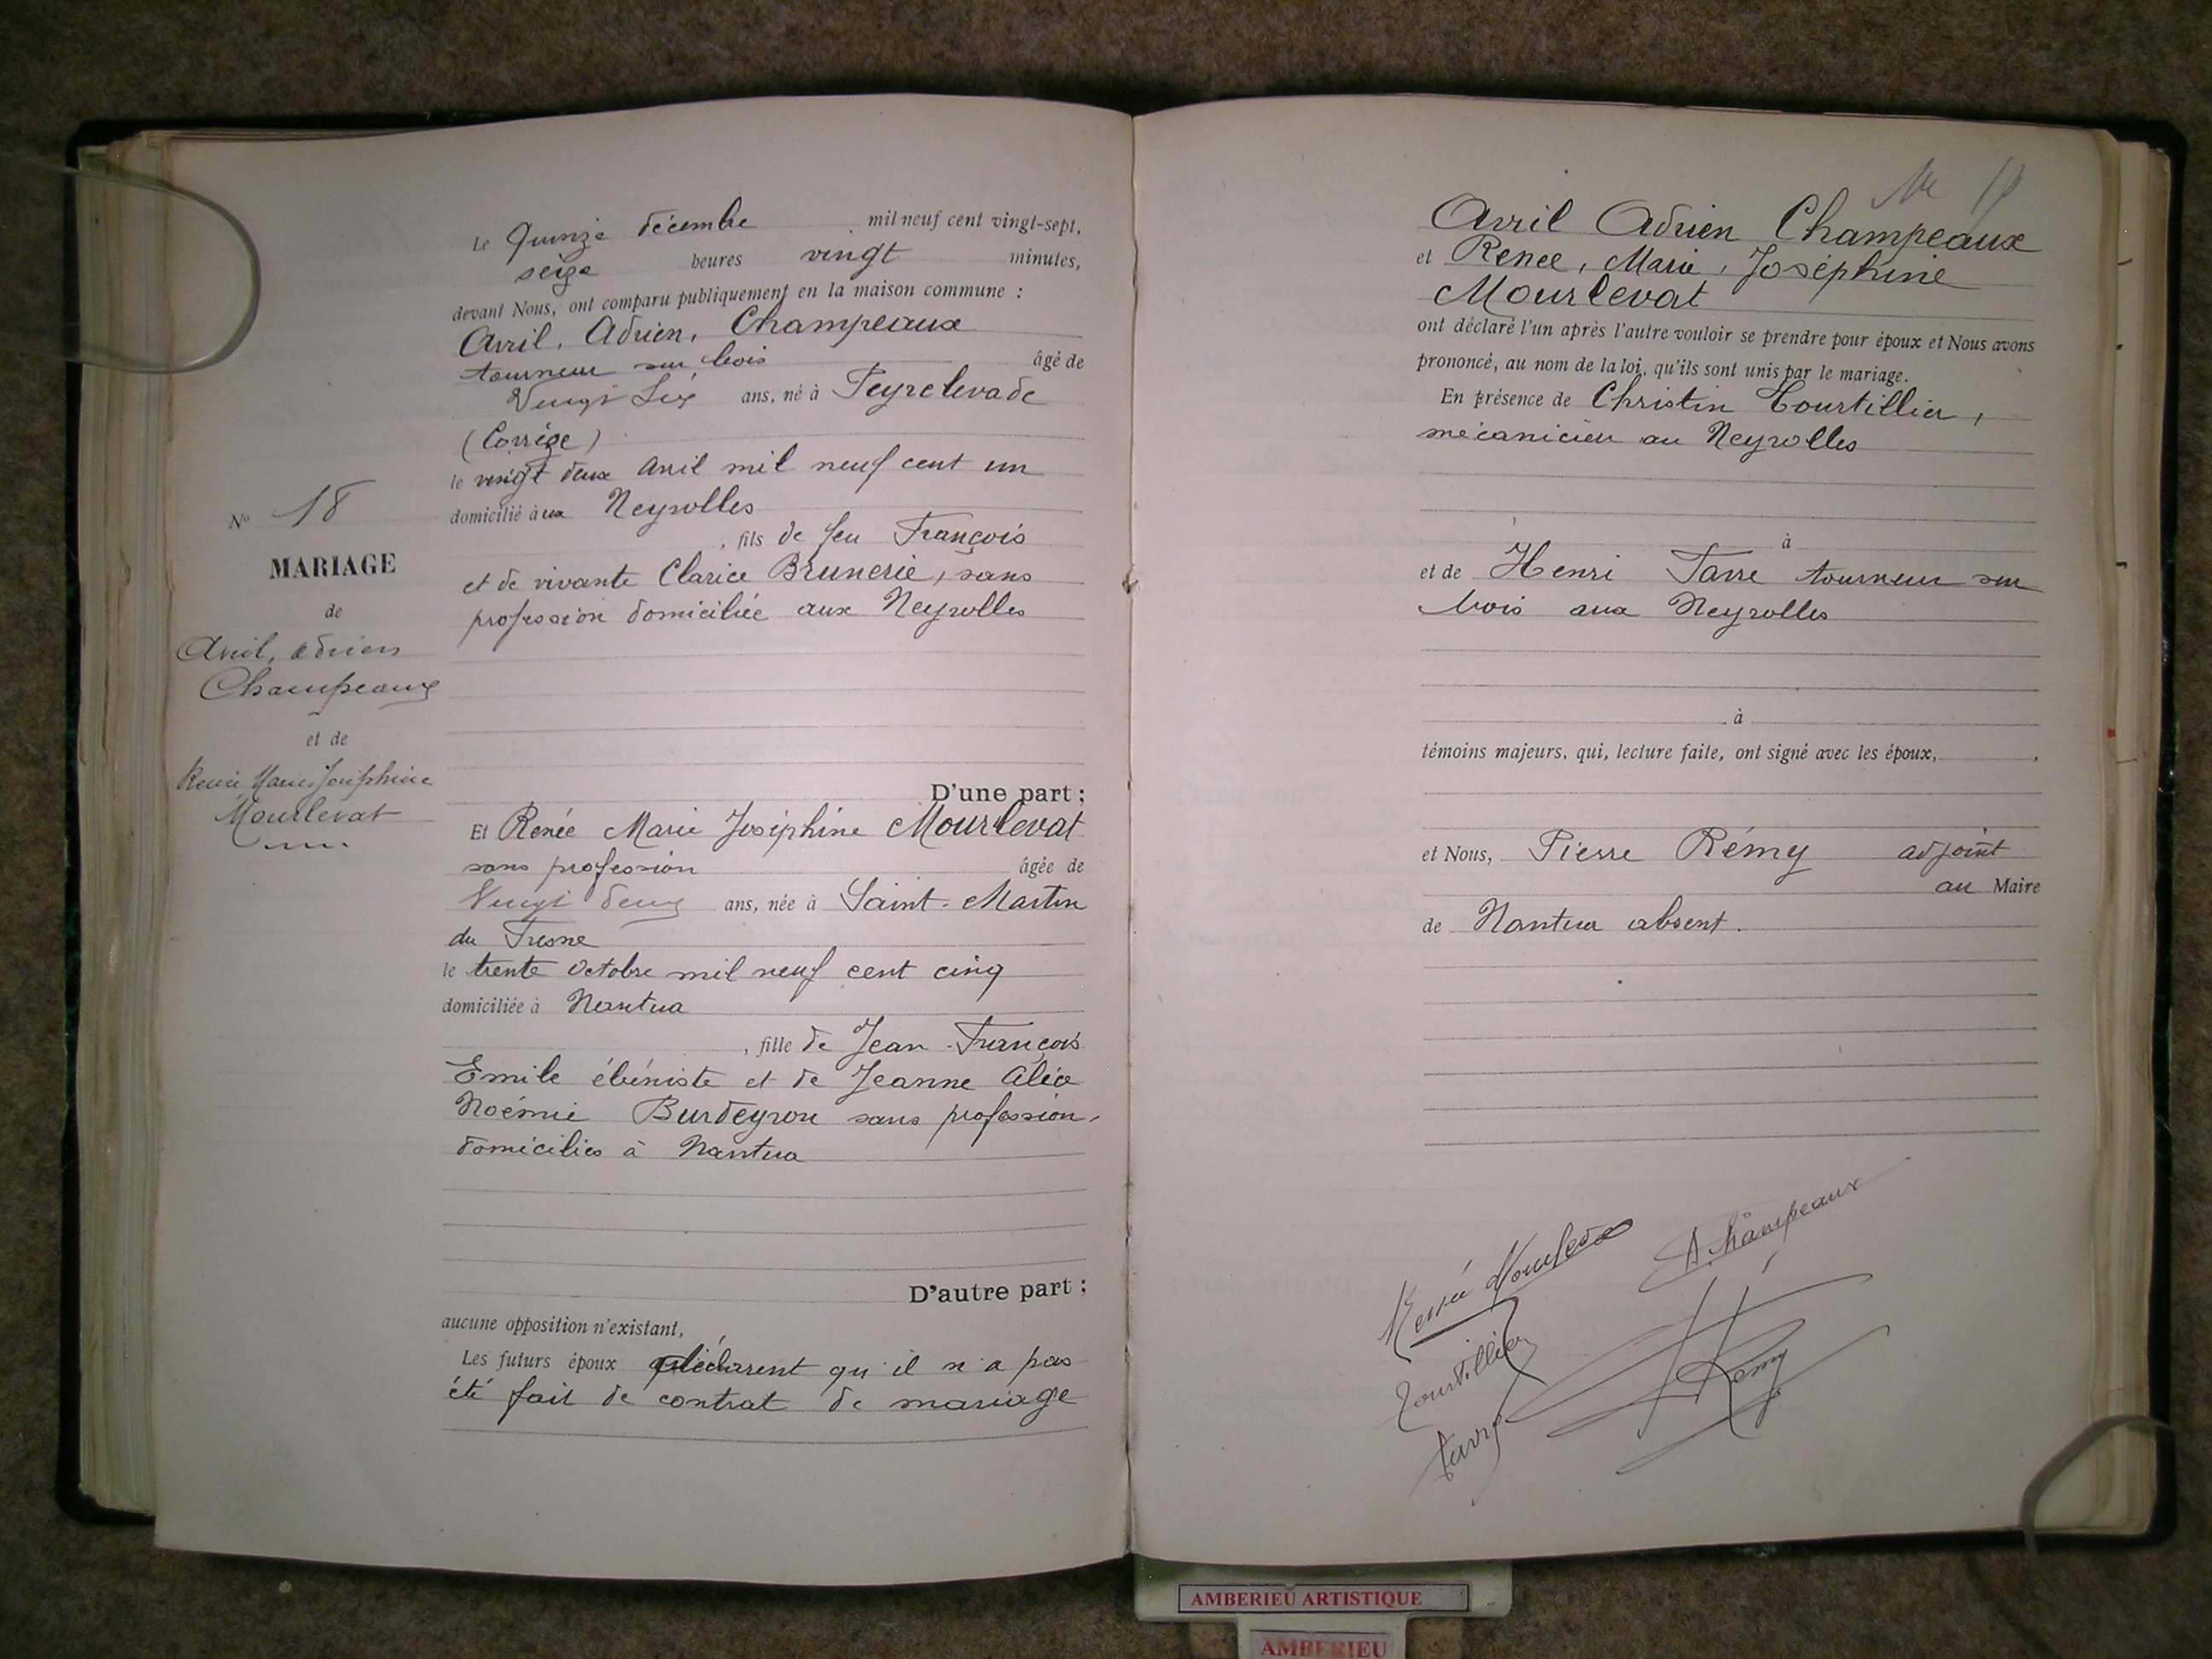 Le quinze décembre mil neuf cent vingt-sept,
seize heures vingt minutes,
devant Nous, ont comparu publiquement en la maison commune :
Avril, Adrien, Champeaux
tourneur sur bois âgé de
Vingt Six ans, né à Peyrelevade
(Corrèze)
le vingt deux avril mil neuf cent un
domicilié aux Neyrolles
, fils de feu François
et de vivante Clarice Brunerie, sans
profession domiciliée aux Neyrolles
D'une part ;
Et Renée Marie Joséphine Mourlevat
sans profession âgée de
Vingt deux ans, née à Saint-Martin
du Fresne
le trente octobre mil neuf cent cinq
domiciliée à Nantua
, fille de Jean-François
Emile ébéniste et de Jeanne Alice
Noémie Burdeyron sans profession,
domiciliés à Nantua
D'autre part ;
aucune opposition n'existant,
Les futurs époux déclarent qu'il n'a pas
été fait de contrat de mariage
N° 18
MARIAGE
de
Avril, Adrien
Champeaux
et de
Renée Marie Joséphine
Mourlevat
Avril Adrien Champeaux
et Renée, Marie, Joséphine
Mourlevat
ont déclaré l'un après l'autre vouloir se prendre pour époux et Nous avons
prononcé, au nom de la loi, qu'ils sont unis par le mariage.
En présence de Christin Tourtillier,
mécanicien au Neyrolles
à
et de Henri Tarre tourneur sur
bois aux Neyrolles
à
témoins majeurs, qui, lecture faite, ont signé avec les époux,
et Nous, Pierre Rémy adjoint
au Maire
de Nantua absent.
Renée Mourlevat
A. Champeaux
Tourtillier
Rémy
AMBERIEU ARTISTIQUE
AMBERIEU